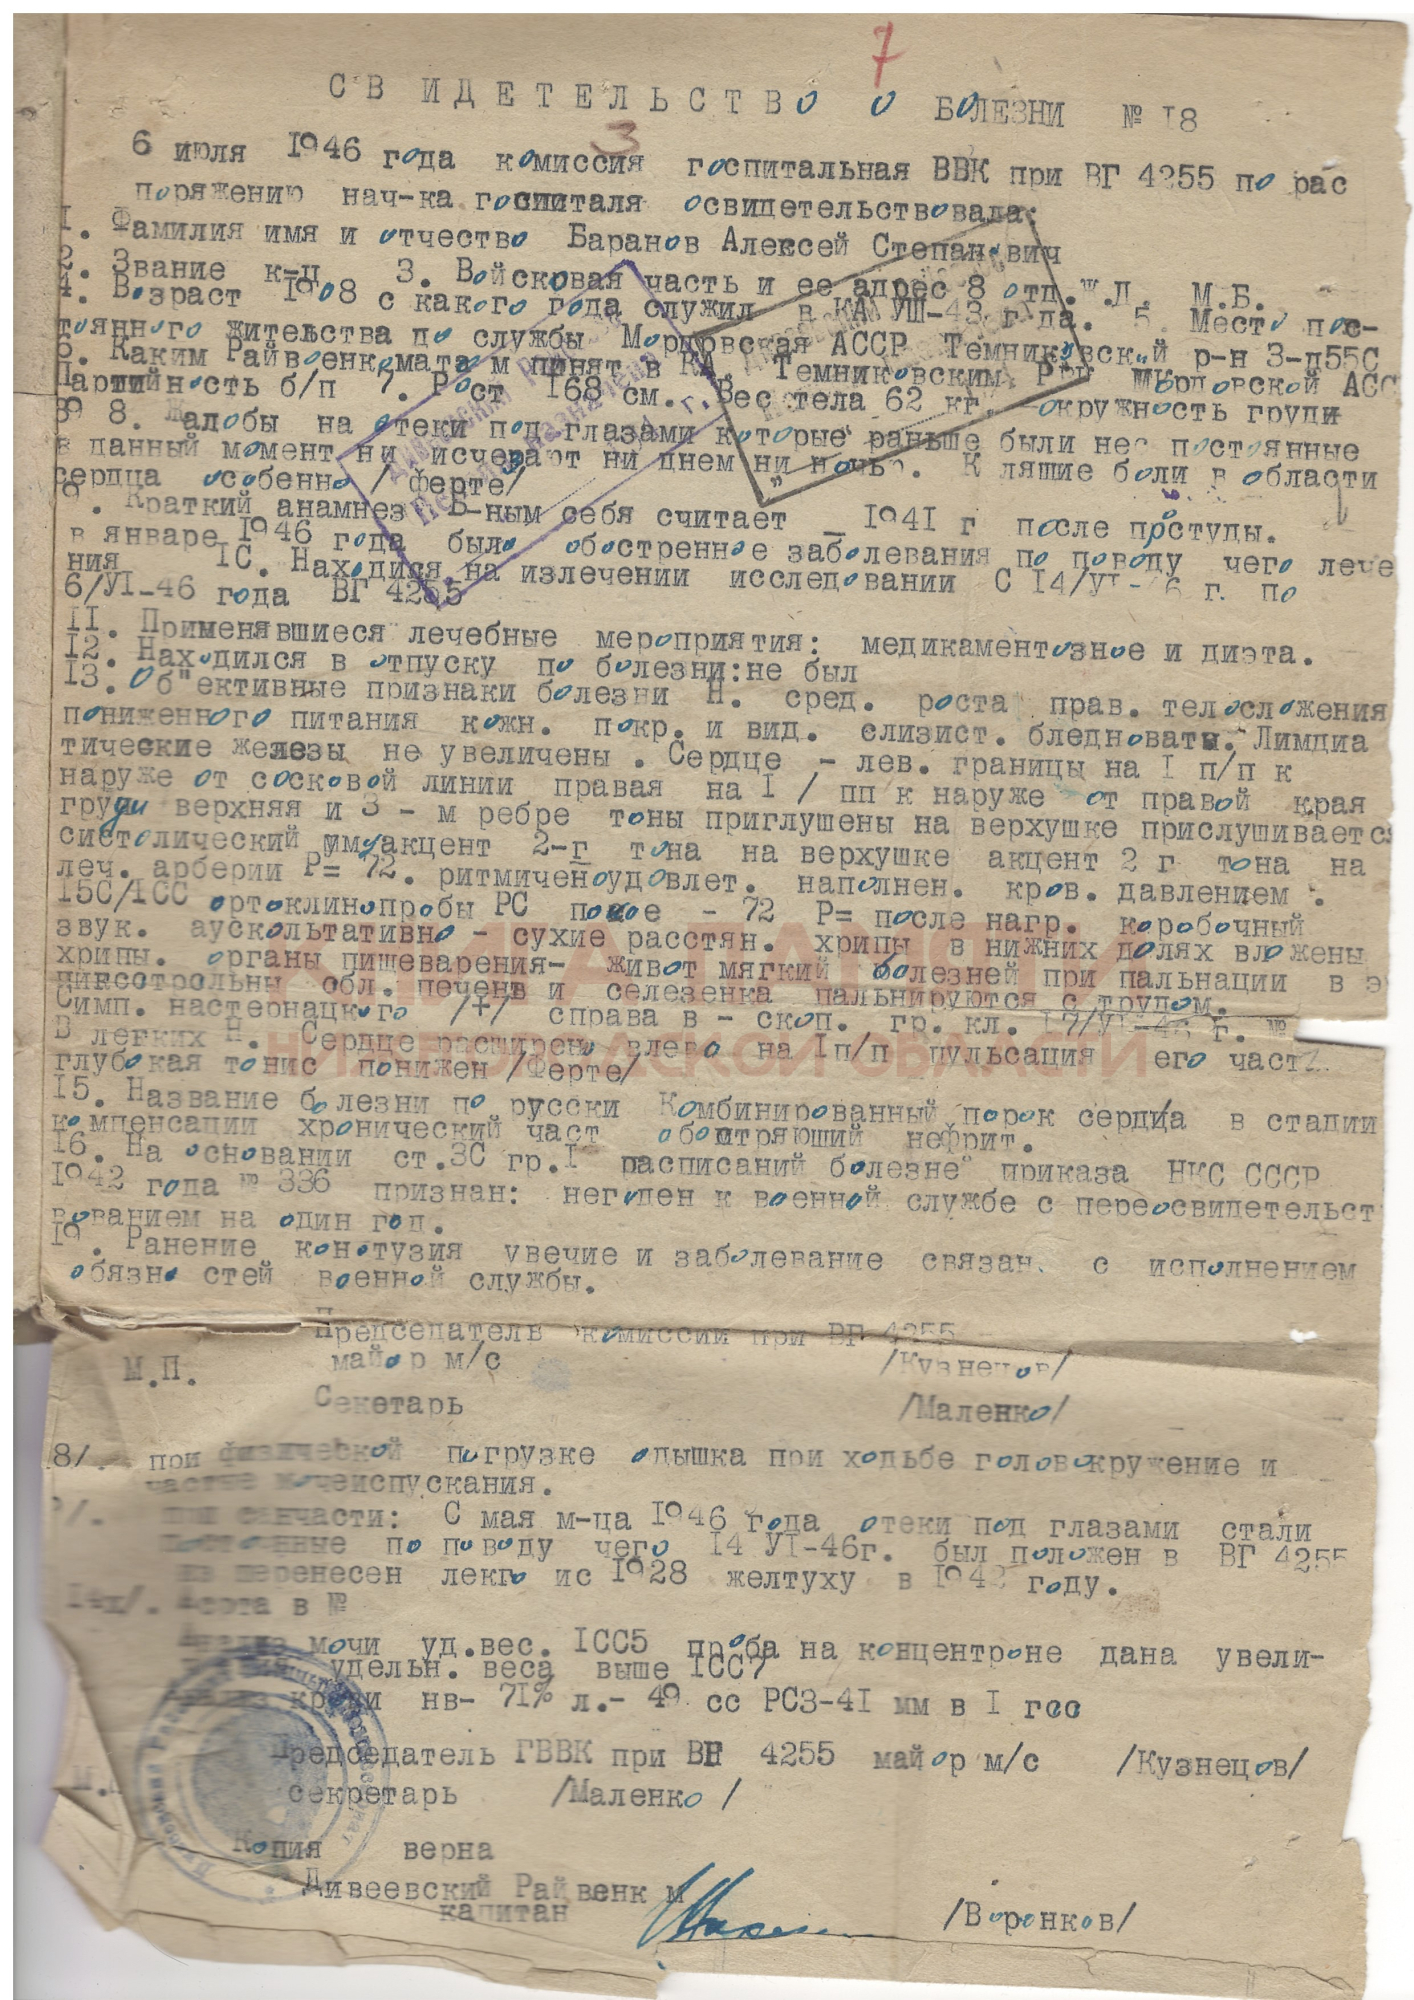 7
СВИДЕТЕЛЬСТВО О БОЛЕЗНИ № 18
3
6 июля 1946 года комиссия госпитальная ВВК при ВГ 4255 по рас
поряжению нач-ка госпиталя освидетельствовала:
1. Фамилия имя и отчество Баранов Алексей Степанович
2. Звание к-ц 3. Войсковая часть и ее адрес 8 отд. Ж.Д. М.Б.
4. Возраст 1908 с какого года служил в КА УШ-43 года. 5. Место пос-
тоянного жительства до службы Мордовская АССР Темниковский р-н З-д55С
6. Каким Райвоенкоматом принят в КА. Темниковским РВК Мордовской АСС
Партийность б/п 7. Рост 168 см. Вес тела 62 кг. окружность груди
89 8. Жалобы на отеки под глазами которые раньше были нес постоянные
в данный момент ни исчерарт ни днем ни ночью. К лящие боли в области
сердца особенно /ферте/
9. Краткий анамнез Б-ным себя считает _ 1941 г после простуды.
в январе 1946 года было обостренное заболевания по поводу чего лече
ния 1С. Находися на излечении исследовании С 14/УI-46 г. по
6/УI-46 года ВГ 4255
11. Применявшиеся лечебные мероприятия: медикаментозное и диэта.
12. Находился в отпуску по болезни:не был
13. Об"ективные признаки болезни Н. сред. роста прав. телосложения
пониженного питания кожн. покр. и вид. слизист. бледноваты. Лимдиа
тические железы не увеличены . Сердце - лев. границы на I п/п к
наруже от сосковой линии правая на I / пп к наруже от правой края
груди верхняя и 3 - м ребре тоны приглушены на верхушке прислушивается
систолический шум акцент 2-г тона на верхушке акцент 2 г тона на
леч. арберии Р= 72. ритмиченоудовлет. наполнен. кров. давлением .
15С/1СС ортоклинопробы РС покое - 72 Р= после нагр. коробочный
звук. аускольтативно - сухие расстян. хрипы в нижних долях вложены
хрипы. органы пищеварения- живот мягкий болезней при пальнации в э
пиксотрольны обл. печень и селезенка пальнируются с трудом.
Симп. настернацкого /+/ справа в - скоп. гр. кл. 17/УI-46 г. №
В легких Н. Сердце расширено влево на Iп/п пульсация его част
глубокая тонис понижен /Ферте/
15. Название болезни по русски Комбинированный порок сердца в стадии
компенсации хронический част обоитряюший нефрит.
16. На основании ст.3С гр.I расписаний болезне приказа НКС СССР
1942 года № 336 признан: негоден к военной службе с переосвидетельст
вованием на один год.
19. Ранение контузия увечие и заболевание связан. с исполнением
обязностей военной службы.
Председатель комиссии при ВГ 4255
М.П. майор м/с /Кузнецов/
Секетарь /Маленко/
8/. при физической погрузке одышка при ходьбе головокружение и
частые мочеиспускания.
9/. при санчасти: С мая м-ца 1946 года отеки под глазами стали
постоянные по поводу чего 14 УI-46г. был положен в ВГ 4255
из перенесен лекго ис 1928 желтуху в 1942 году.
Аорта в №
Анализ мочи уд.вес. 1СС5 проба на концентроне дана увели-
удельн. веса выше 1СС7
крови нв- 71% л.- 49 сс РСЗ-41 мм в I гсс
Председатель ГВВК при ВГ 4255 майор м/с /Кузнецов/
секретарь /Маленко /
Копия верна
Дивеевский Райвенк м
капитан /Воронков/
КНИГА ПАМЯТИ
НИЖЕГОРОДСКОЙ ОБЛАСТИ